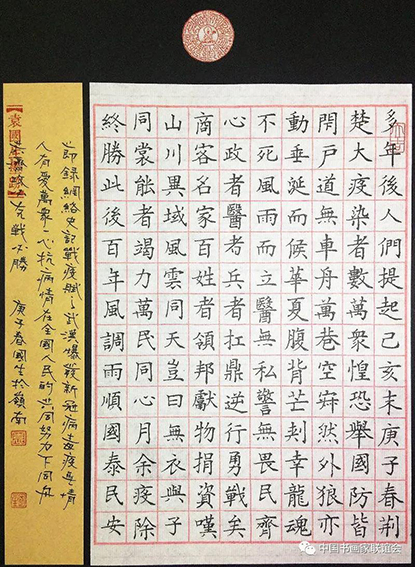 多年後人們提起己亥末庚子春荆
楚大疫染者數萬眾惶恐舉國防皆
閉戶道無車舟萬巷空寂然外狼亦
動垂涎而候華夏腹背芒刺幸龍魂
不死風雨而立醫無私警無畏民齊
心政者醫者兵者扛鼎逆行勇戰矣
商客名家百姓者領邦獻物捐資嘆
山川異域風雲同天豈曰無衣與子
同裳能者竭力萬民同心月余疫除
終勝此後百年風調雨順國泰民安
即錄網絡史記戰疫賦之武漢爆發新冠病毒疫情
人有愛萬衆一心抗病情在全國人民的共同努力下同舟
克戰必勝 庚子春國生於嶺南
袁國
中国书画家联谊会